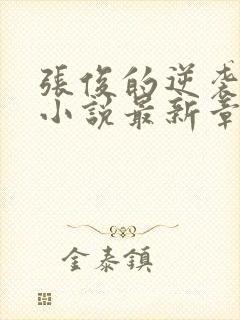 張俊的逆袭
小說最新章
金泰鎮